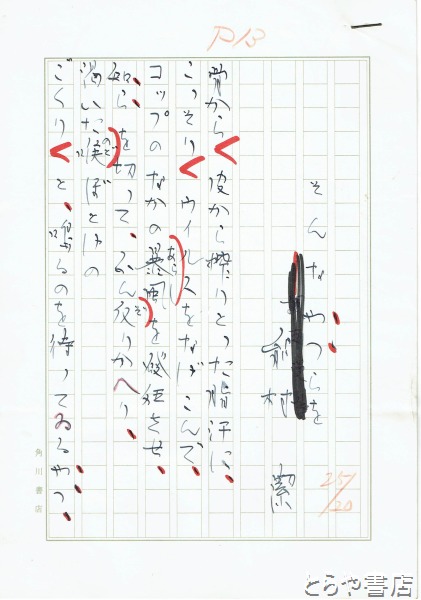 P13
そんなやつらを
村
25/20
骨から皮から搾りとった脂汗に、
こっそりウイルスをなげこんで、
コップのなかの暴風を発狂させ、
あらし
知らを切って、ふん反りかへり、
ぞ
渇いた喉ぼとけの
のど
ごくりと、鳴るのを待ってゐるやつ、
角川書店
とらや書店